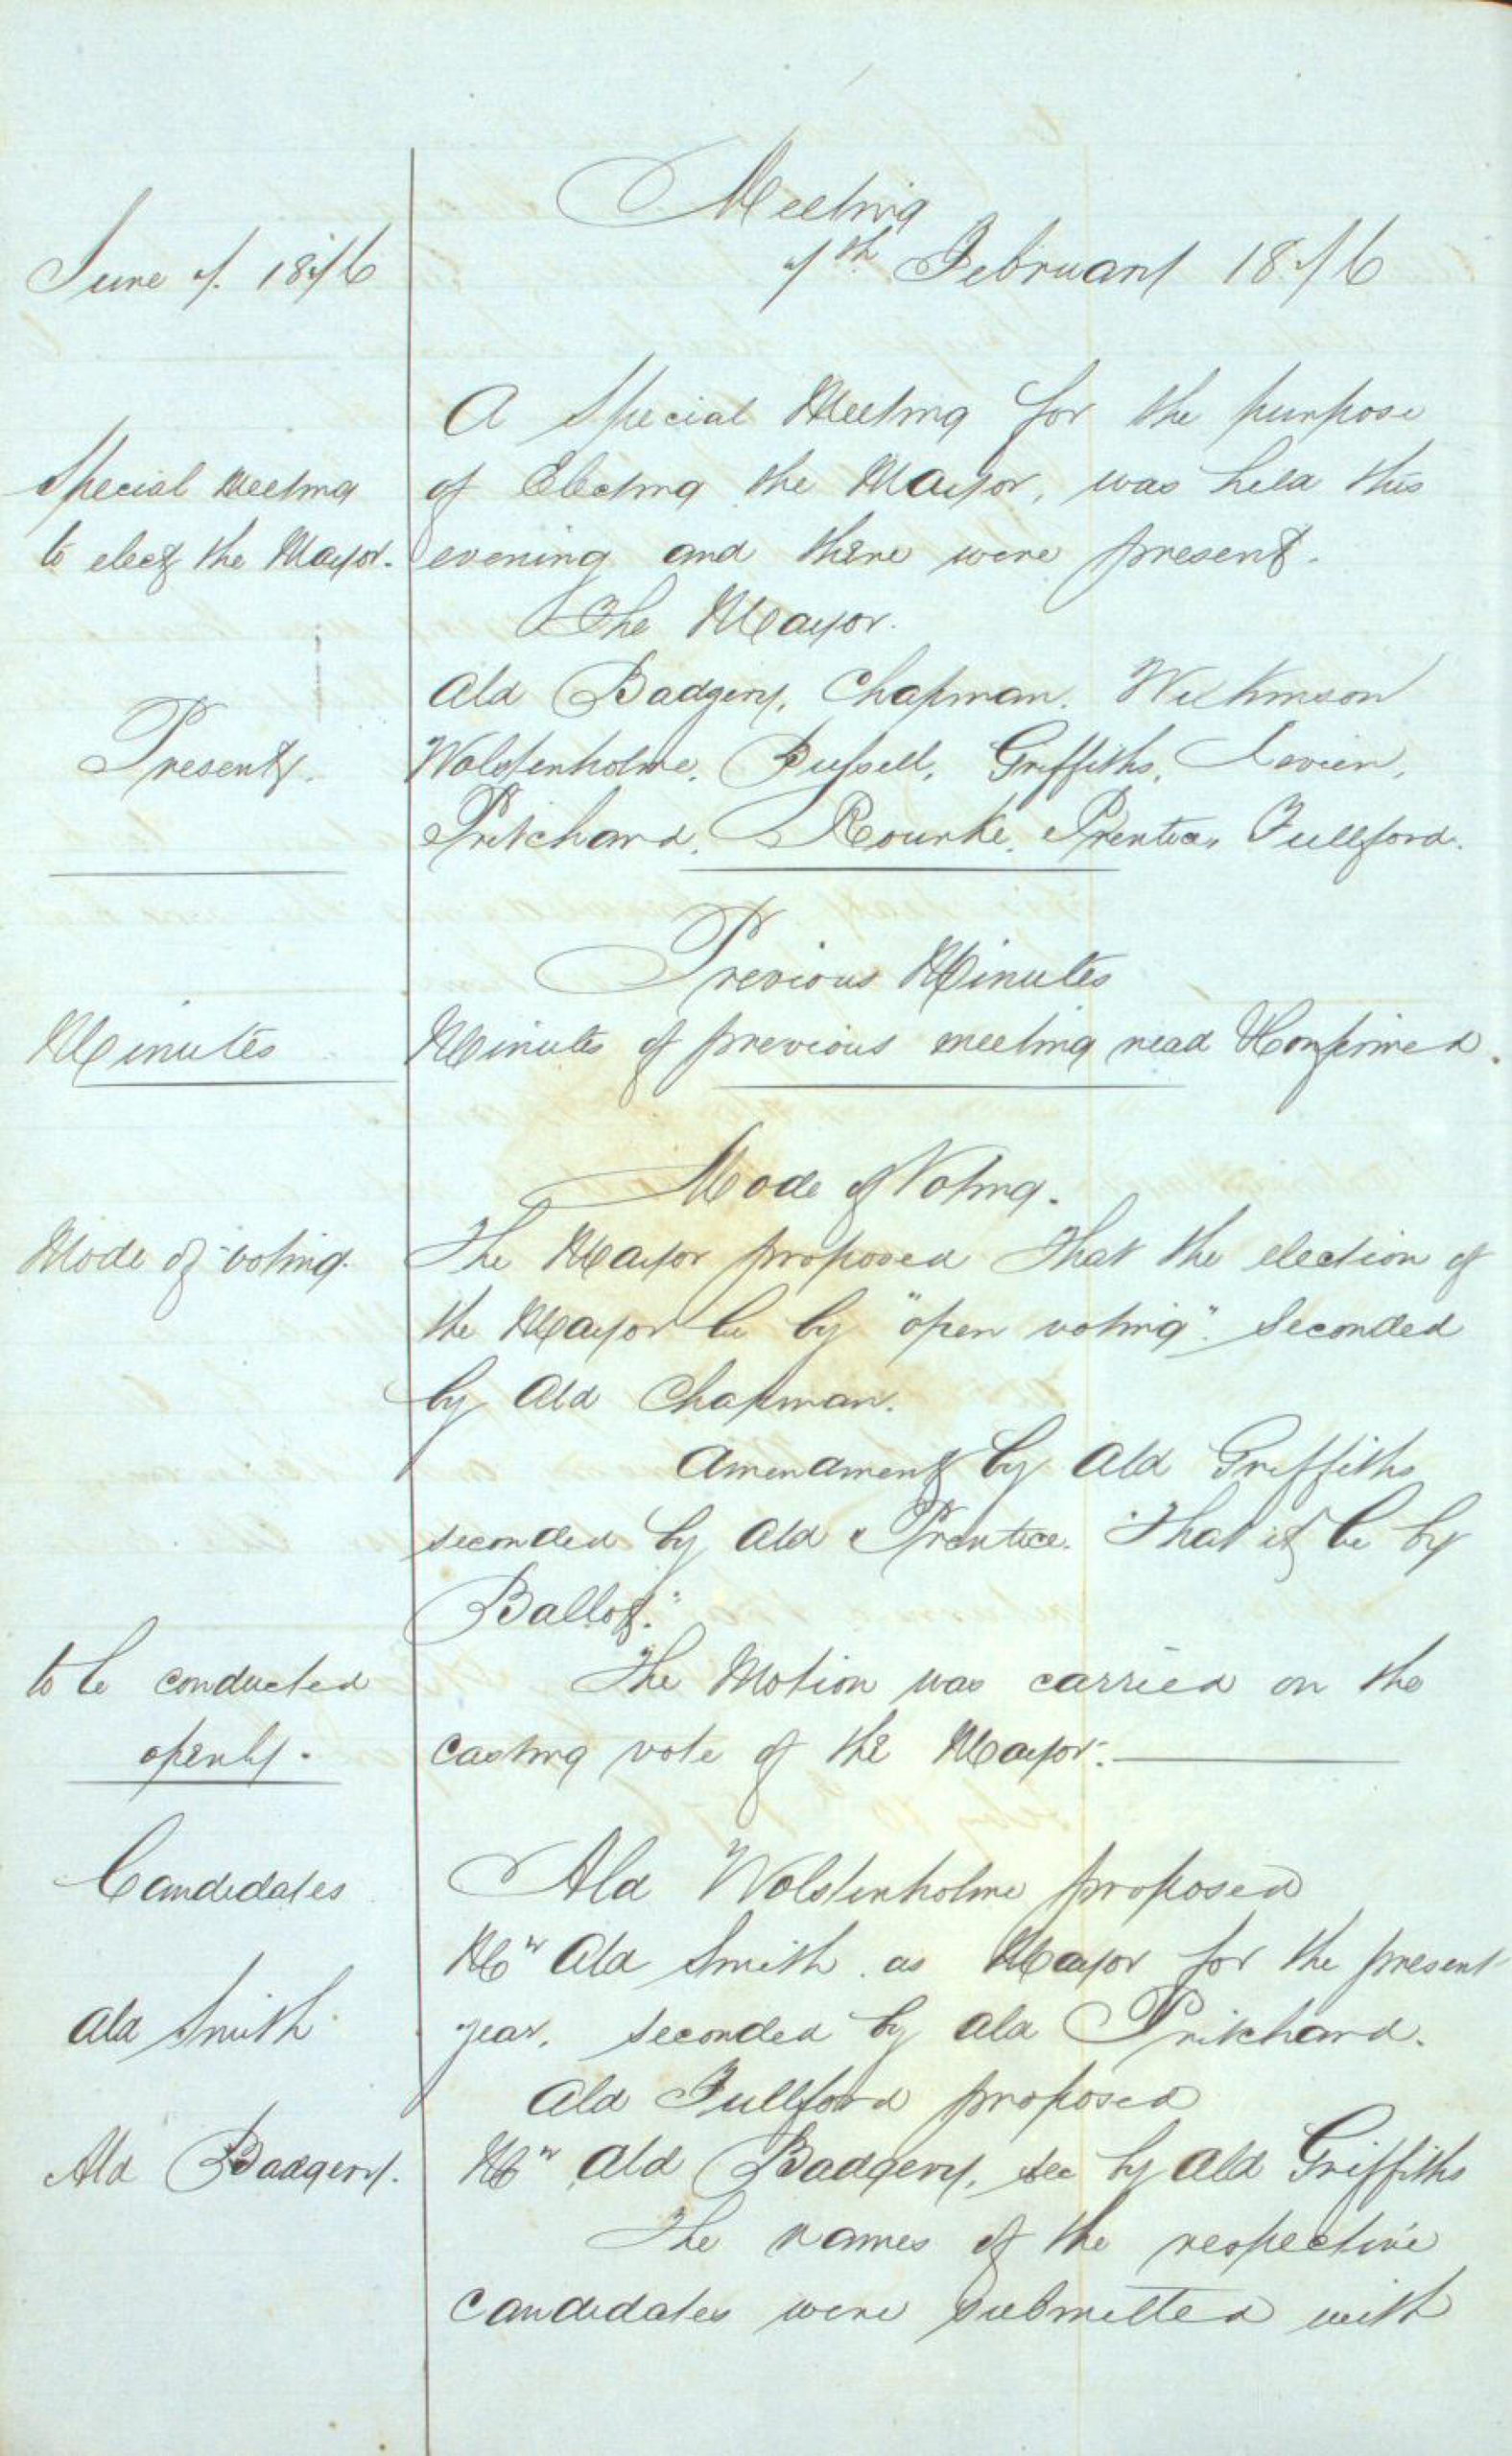 Meeting
June 7. 1876
7th February 1876
A Special Meeting for the purpose
Special Meeting
of Electing the Mayor, was held this
to elect the Mayor.
evening and there were present.
The Mayor.
Ald Badgery, Chapman. Wilkinson
Present.
Wolstenholme, Bussell, Griffiths, Levien,
Pritchard, Rourke, Prentice, Fullford.
Previous Minutes
Minutes
Minutes of previous meeting read & Confirmed.
Mode of Voting.
Mode of voting.
The Mayor proposed That the election of
the Mayor be by "open voting". Seconded
by Ald Chapman.
Amendment by Ald Griffiths
seconded by Ald Prentice. "That it be by
Ballot."
to be conducted
The Motion was carried on the
openly.
casting vote of the Mayor.
Candidates
Ald Wolstenholme proposed
Mr Ald Smith as Mayor for the present
Ald Smith
year, seconded by Ald Pritchard.
Ald Fullford proposed
Ald Badgery.
Mr Ald Badgery, sec by Ald Griffiths
The names of the respective
candidates were submitted with